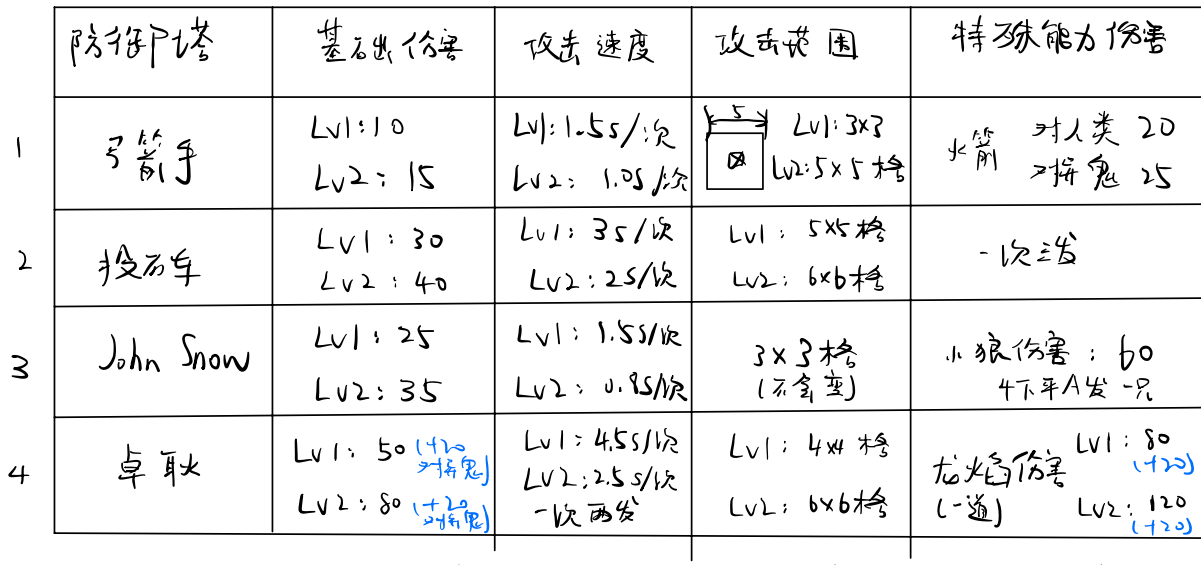 防御塔 基础伤害 攻击速度 攻击范围 特殊能力伤害
1 弓箭手
Lv1:10
Lv2: 15
Lv1:1.5s/次
Lv2: 1.0s/次
5
Lv1:3x3
Lv2:5x5格
火箭
对人类 20
对异鬼 25
2 投石车
Lv1: 30
Lv2: 40
Lv1: 3s/次
Lv2: 2s/次
Lv1: 5x5格
Lv2: 6x6格
一次三发
3 John Snow
Lv1: 25
Lv2: 35
Lv1: 1.5s/次
Lv2: 0.8s/次
3x3格
(不会变)
小狼伤害: 60
4下平A发一只
4 卓耿
Lv1: 50 (+20
对异鬼)
Lv2: 80 (+20
对异鬼)
Lv1: 4.5s/次
Lv2: 2.5s/次
一次两发
Lv1: 4x4格
Lv2: 6x6格
龙焰伤害
(一道)
Lv1: 80
(+20)
Lv2: 120
(+20)